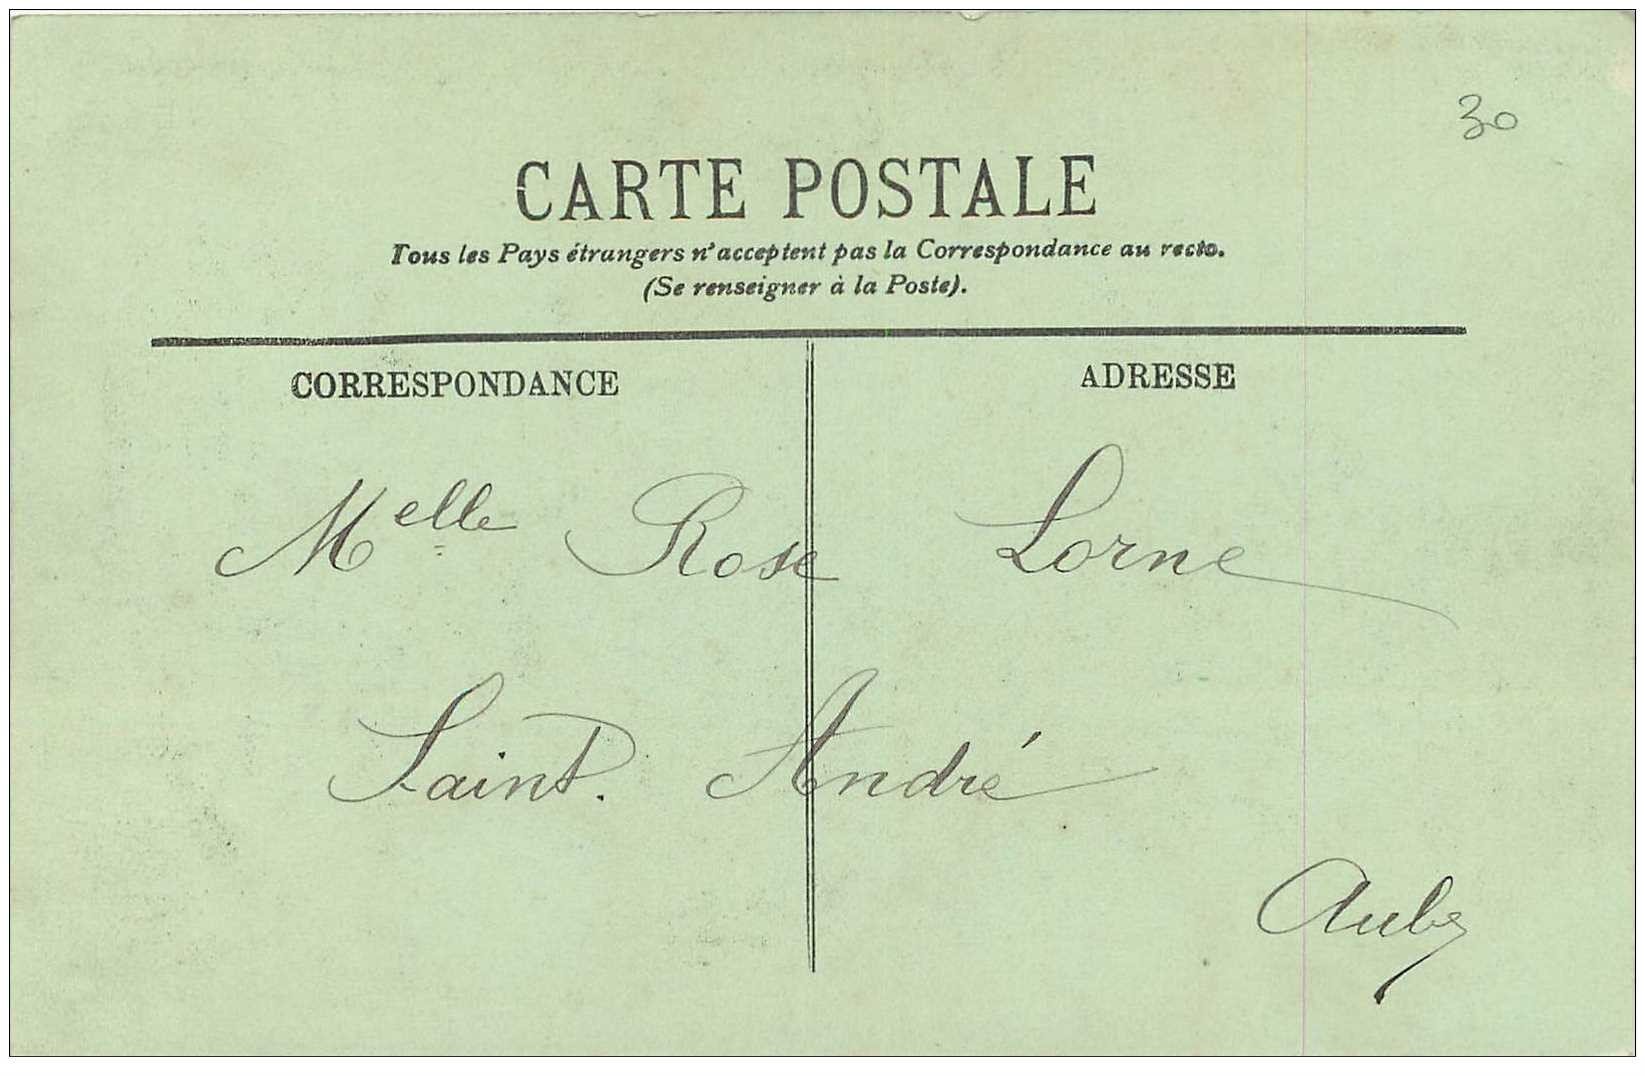 30
CARTE POSTALE
Tous les Pays étrangers n'acceptent pas la Correspondance au recto.
(Se renseigner à la Poste).
CORRESPONDANCE
ADRESSE
Melle Rose Lorne
Saint. André
Aube